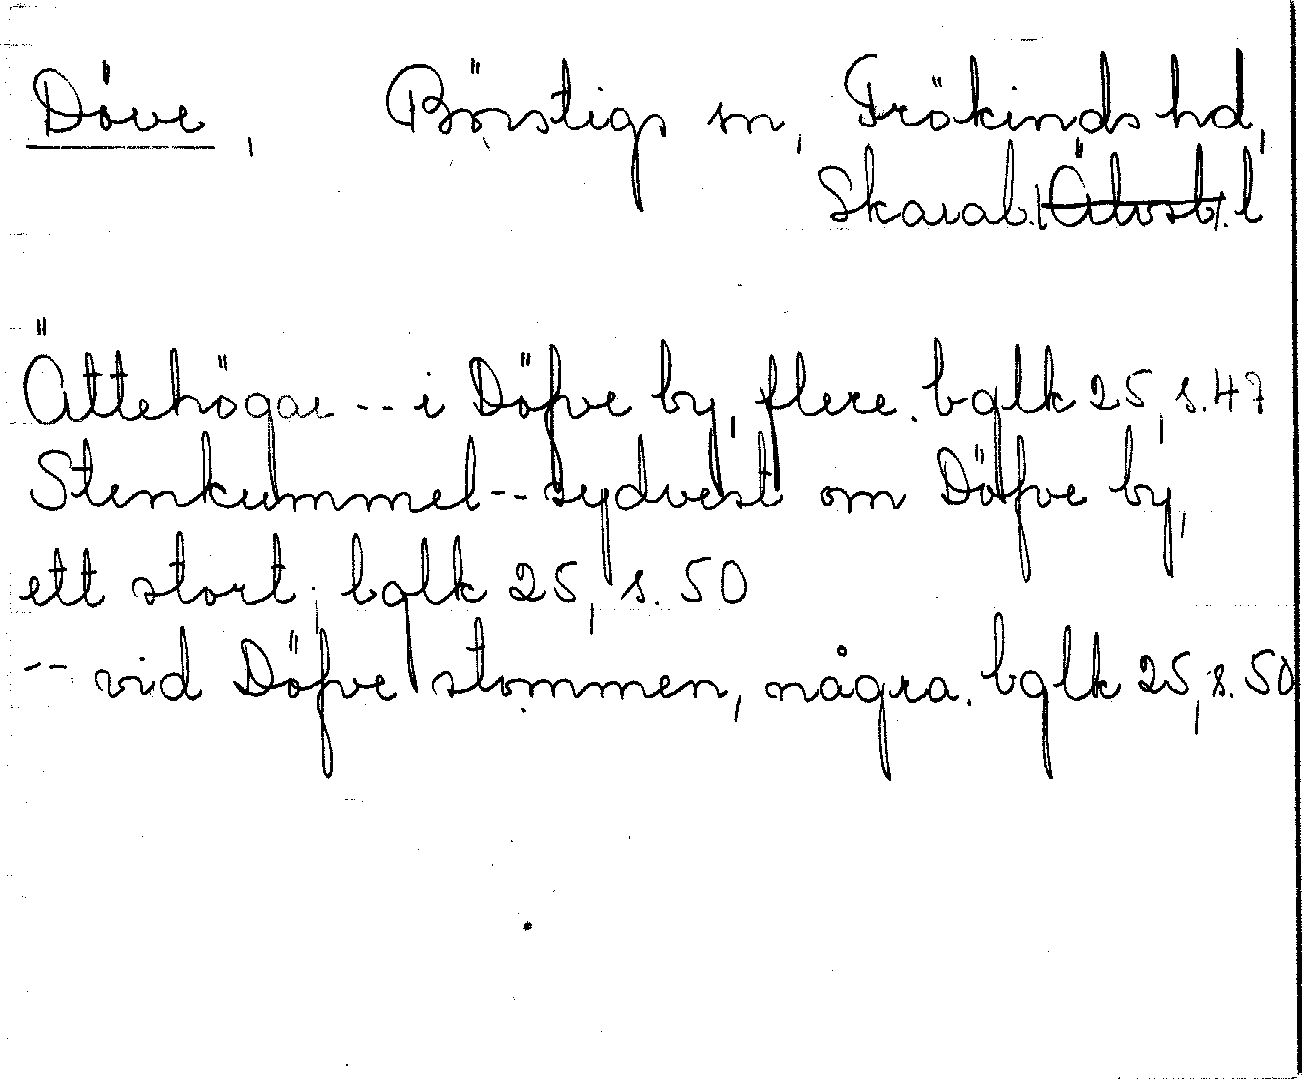 Döve, Börstigs sn, Frökinds hd,
Skarab. Älvsb. l
Ättehögar -- i Döfve by, flere. bglk 25, s. 47
Stenkummel -- sydvest om Döfve by,
ett stort. bglk 25, s. 50
-- vid Döfve stommen, några. bglk 25, s. 50